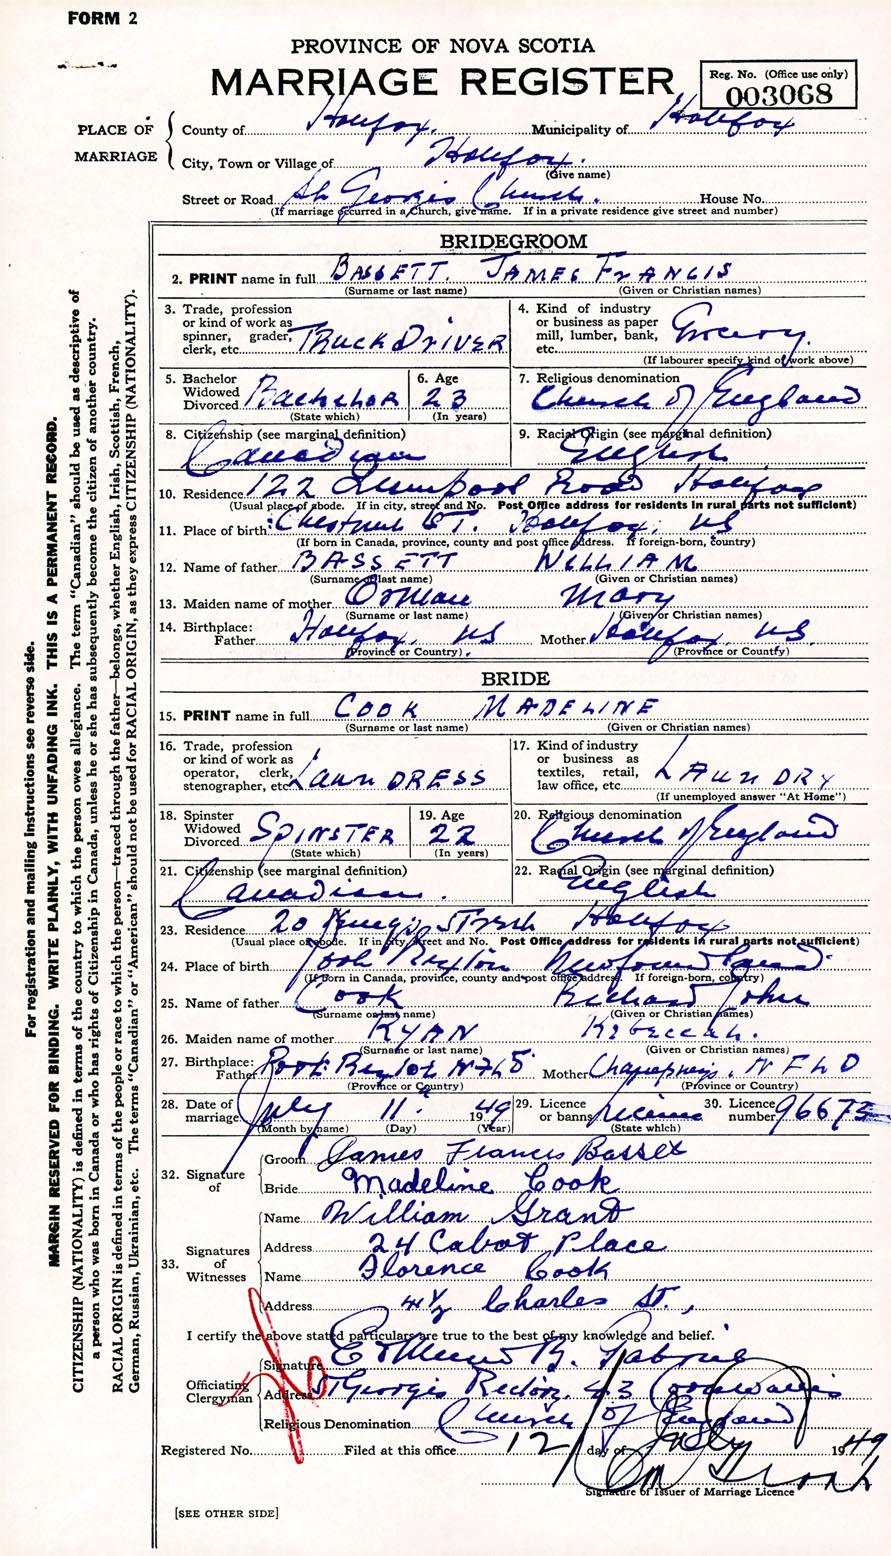 FORM 2
PROVINCE OF NOVA SCOTIA
MARRIAGE REGISTER
Reg. No. (Office use only)
003068
PLACE OF MARRIAGE
County of Halifax. Municipality of Halifax
City, Town or Village of Halifax.
(Give name)
Street or Road St Georges Church. House No.
(If marriage occurred in a Church, give name. If in a private residence give street and number)
BRIDEGROOM
2. PRINT name in full BASSETT. JAMES FRANCIS
(Surname or last name) (Given or Christian names)
3. Trade, profession or kind of work as spinner, grader, clerk, etc. TRUCK DRIVER
4. Kind of industry or business as paper mill, lumber, bank, etc. Grocery.
(If labourer specify kind of work above)
5. Bachelor Widowed Divorced Bachelor
(State which)
6. Age 23
(In years)
7. Religious denomination Church of England
8. Citizenship (see marginal definition) Canadian
9. Racial Origin (see marginal definition) English
10. Residence 122 Road Halifax
(Usual place of abode. If in city, street and No. Post Office address for residents in rural parts not sufficient)
11. Place of birth: Chestnut ST. Halifax, NS
(If born in Canada, province, county and post office address. If foreign-born, country)
12. Name of father BASSETT WILLIAM
(Surname or last name) (Given or Christian names)
13. Maiden name of mother Orman Mary
(Surname or last name) (Given or Christian names)
14. Birthplace: Father Halifax. NS Mother Halifax NS.
(Province or Country) (Province or Country)
BRIDE
15. PRINT name in full COOK MADELINE
(Surname or last name) (Given or Christian names)
16. Trade, profession or kind of work as operator, clerk, stenographer, etc. LAUNDRESS
17. Kind of industry or business as textiles, retail, law office, etc. LAUNDRY
(If unemployed answer "At Home")
18. Spinster Widowed Divorced SPINSTER
(State which)
19. Age 22
(In years)
20. Religious denomination Church of England
21. Citizenship (see marginal definition) Canadian.
22. Racial Origin (see marginal definition) English
23. Residence 20 Street Halifax
(Usual place of abode. If in city, street and No. Post Office address for residents in rural parts not sufficient)
24. Place of birth Newfoundland.
(If Born in Canada, province, county and post office address. If foreign-born, country)
25. Name of father Cook Richard John
(Surname or last name) (Given or Christian names)
26. Maiden name of mother RYAN Rebeccah.
(Surname or last name) (Given or Christian names)
27. Birthplace: Father Mother NFLD
(Province or Country) (Province or Country)
28. Date of marriage July 11. 1949
(Month by name) (Day) (Year)
29. Licence or banns License
(State which)
30. Licence number 96675
32. Signature of
Groom James Francis Bassett
Bride Madeline Cook
33. Signatures of Witnesses
Name William Grant
Address 24 Cabot Place
Name Florence Cook
Address 4½ Charles St.,
I certify the above stated particulars are true to the best of my knowledge and belief.
Officiating Clergyman
Signature
Address St Georges Rectory. 43 Cornwallis
Religious Denomination Church of England
Registered No. Filed at this office 12 day of July 1949
Signature of Issuer of Marriage Licence
[SEE OTHER SIDE]
For registration and mailing instructions see reverse side.
MARGIN RESERVED FOR BINDING. WRITE PLAINLY, WITH UNFADING INK. THIS IS A PERMANENT RECORD.
CITIZENSHIP (NATIONALITY) is defined in terms of the country to which the person owes allegiance. The term "Canadian" should be used as descriptive of
a person who was born in Canada or who has rights of Citizenship in Canada, unless he or she has subsequently become the citizen of another country.
RACIAL ORIGIN is defined in terms of the people or race to which the person—traced through the father—belongs, whether English, Irish, Scottish, French,
German, Russian, Ukrainian, etc. The terms "Canadian" or "American" should not be used for RACIAL ORIGIN, as they express CITIZENSHIP (NATIONALITY).